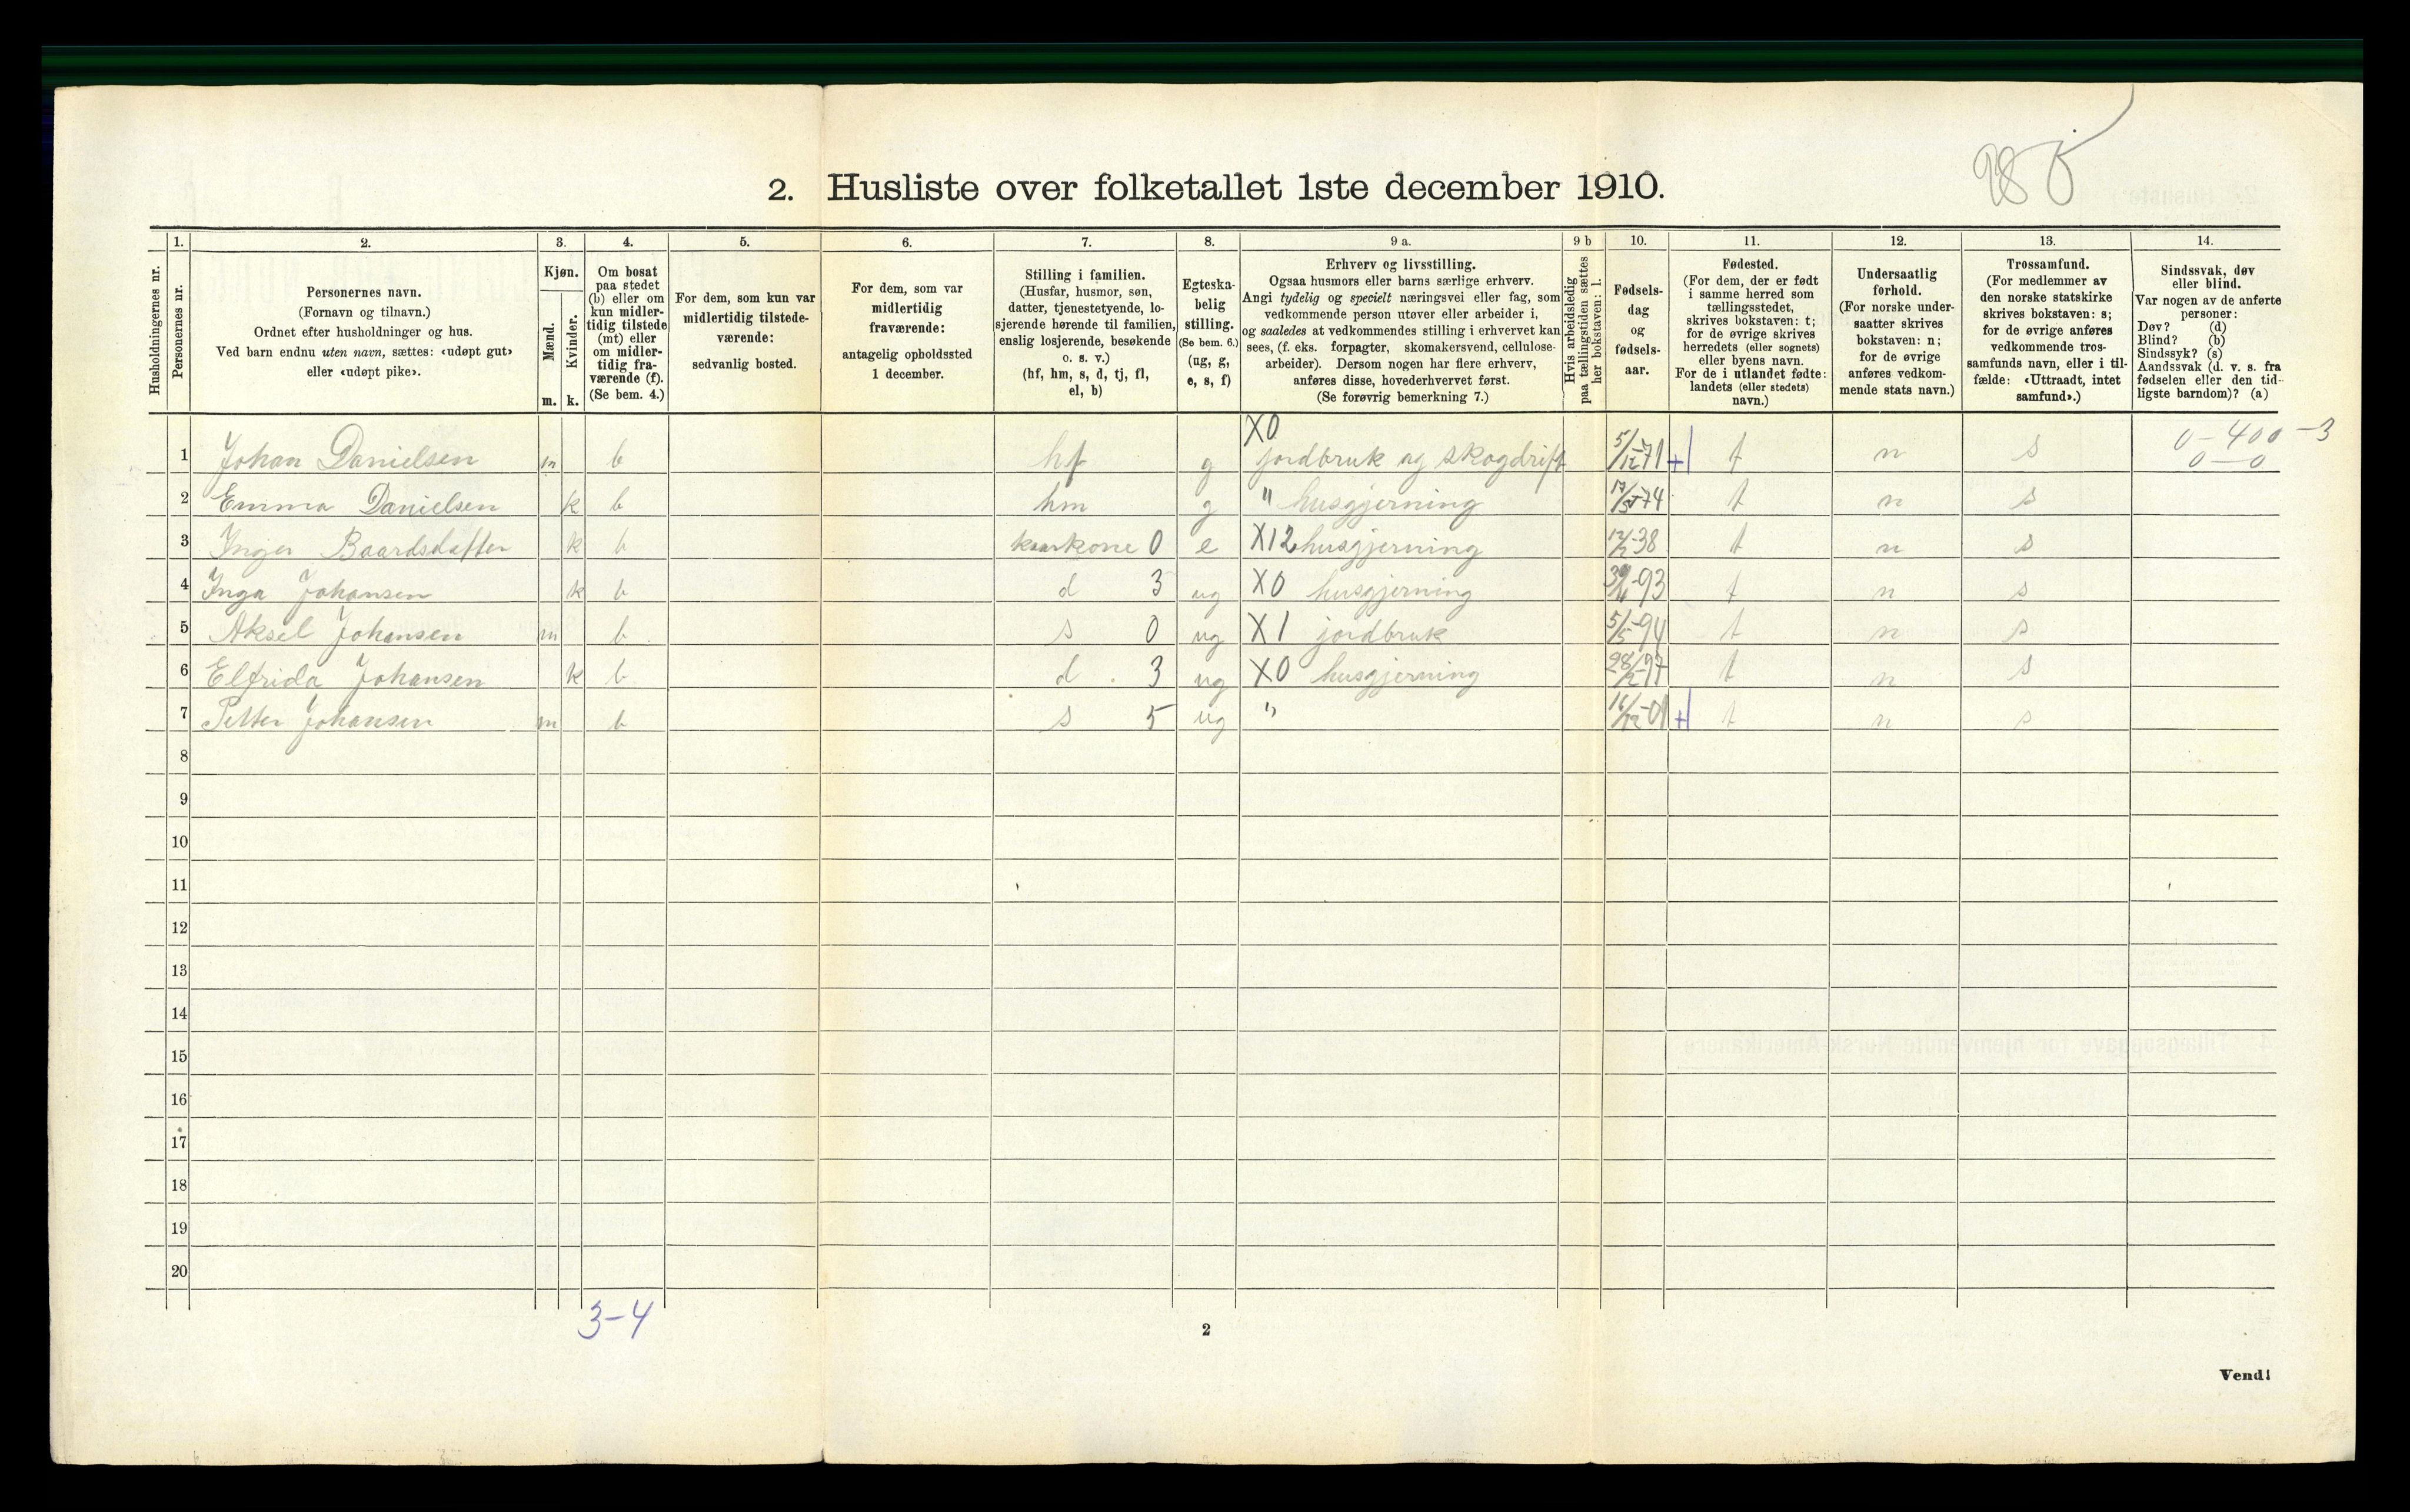 985
2. Husliste over folketallet 1ste december 1910.
Husholdningernes nr.
1. Personernes nr.
2. Personernes navn.
(Fornavn og tilnavn.)
Ordnet efter husholdninger og hus.
Ved barn endnu uten navn, sættes: «udøpt gut»
eller «udøpt pike».
3. Kjøn.
Mænd. m.
Kvinder. k.
4. Om bosat
paa stedet
(b) eller om
kun midler-
tidig tilstede
(mt) eller
om midler-
tidig fra-
værende (f).
(Se bem. 4.)
5. For dem, som kun var
midlertidig tilstede-
værende:
sedvanlig bosted.
6. For dem, som var
midlertidig
fraværende:
antagelig opholdssted
1 december.
7. Stilling i familien.
(Husfar, husmor, søn,
datter, tjenestetyende, lo-
sjerende hørende til familien,
enslig losjerende, besøkende
o. s. v.)
(hf, hm, s, d, tj, fl,
el, b)
8. Egteska-
belig
stilling.
(Se bem. 6.)
(ug, g,
e, s, f)
9 a. Erhverv og livsstilling.
Ogsaa husmors eller barns særlige erhverv.
Angi tydelig og specielt næringsvei eller fag, som
vedkommende person utøver eller arbeider i,
og saaledes at vedkommendes stilling i erhvervet kan
sees, (f. eks. forpagter, skomakersvend, cellulose-
arbeider). Dersom nogen har flere erhverv,
anføres disse, hovederhvervet først.
(Se forøvrig bemerkning 7.)
9 b Hvis arbeidsledig
paa tællingstiden sættes
her bokstaven: l.
10. Fødsels-
dag
og
fødsels-
aar.
11. Fødested.
(For dem, der er født
i samme herred som
tællingsstedet,
skrives bokstaven: t;
for de øvrige skrives
herredets (eller sognets)
eller byens navn.
For de i utlandet fødte:
landets (eller stedets)
navn.)
12. Undersaatlig
forhold.
(For norske under-
saatter skrives
bokstaven: n;
for de øvrige
anføres vedkom-
mende stats navn.)
13. Trossamfund.
(For medlemmer av
den norske statskirke
skrives bokstaven: s;
for de øvrige anføres
vedkommende tros-
samfunds navn, eller i til-
fælde: «Uttraadt, intet
samfund».)
14. Sindssvak, døv
eller blind.
Var nogen av de anførte
personer:
Døv? (d)
Blind? (b)
Sindssyk? (s)
Aandssvak (d. v. s. fra
fødselen eller den tid-
ligste barndom)? (a)
1 Johan Danielsen m b hf g X0 jordbruk og skogdrift 5/12-71 t n s 0-400-3 0-0
2 Emma Danielsen k b hm g " husgjerning t n s
3 Inger Baardsdatter k b kaarkone 0 e X12 husgjerning t n s
4 Inga Johansen k b d 3 ug X0 husgjerning t n s
5 Aksel Johansen m b s 0 ug X1 jordbruk 5/5-94 t n s
6 Elfrida Johansen k b d 3 ug X0 husgjerning 28/12-97 t n s
7 Petter Johansen m b s 5 ug " 16/12-01 t n s
8
9
10
11
12
13
14
15
16
17
18
19
20
3-4
2
Vend!